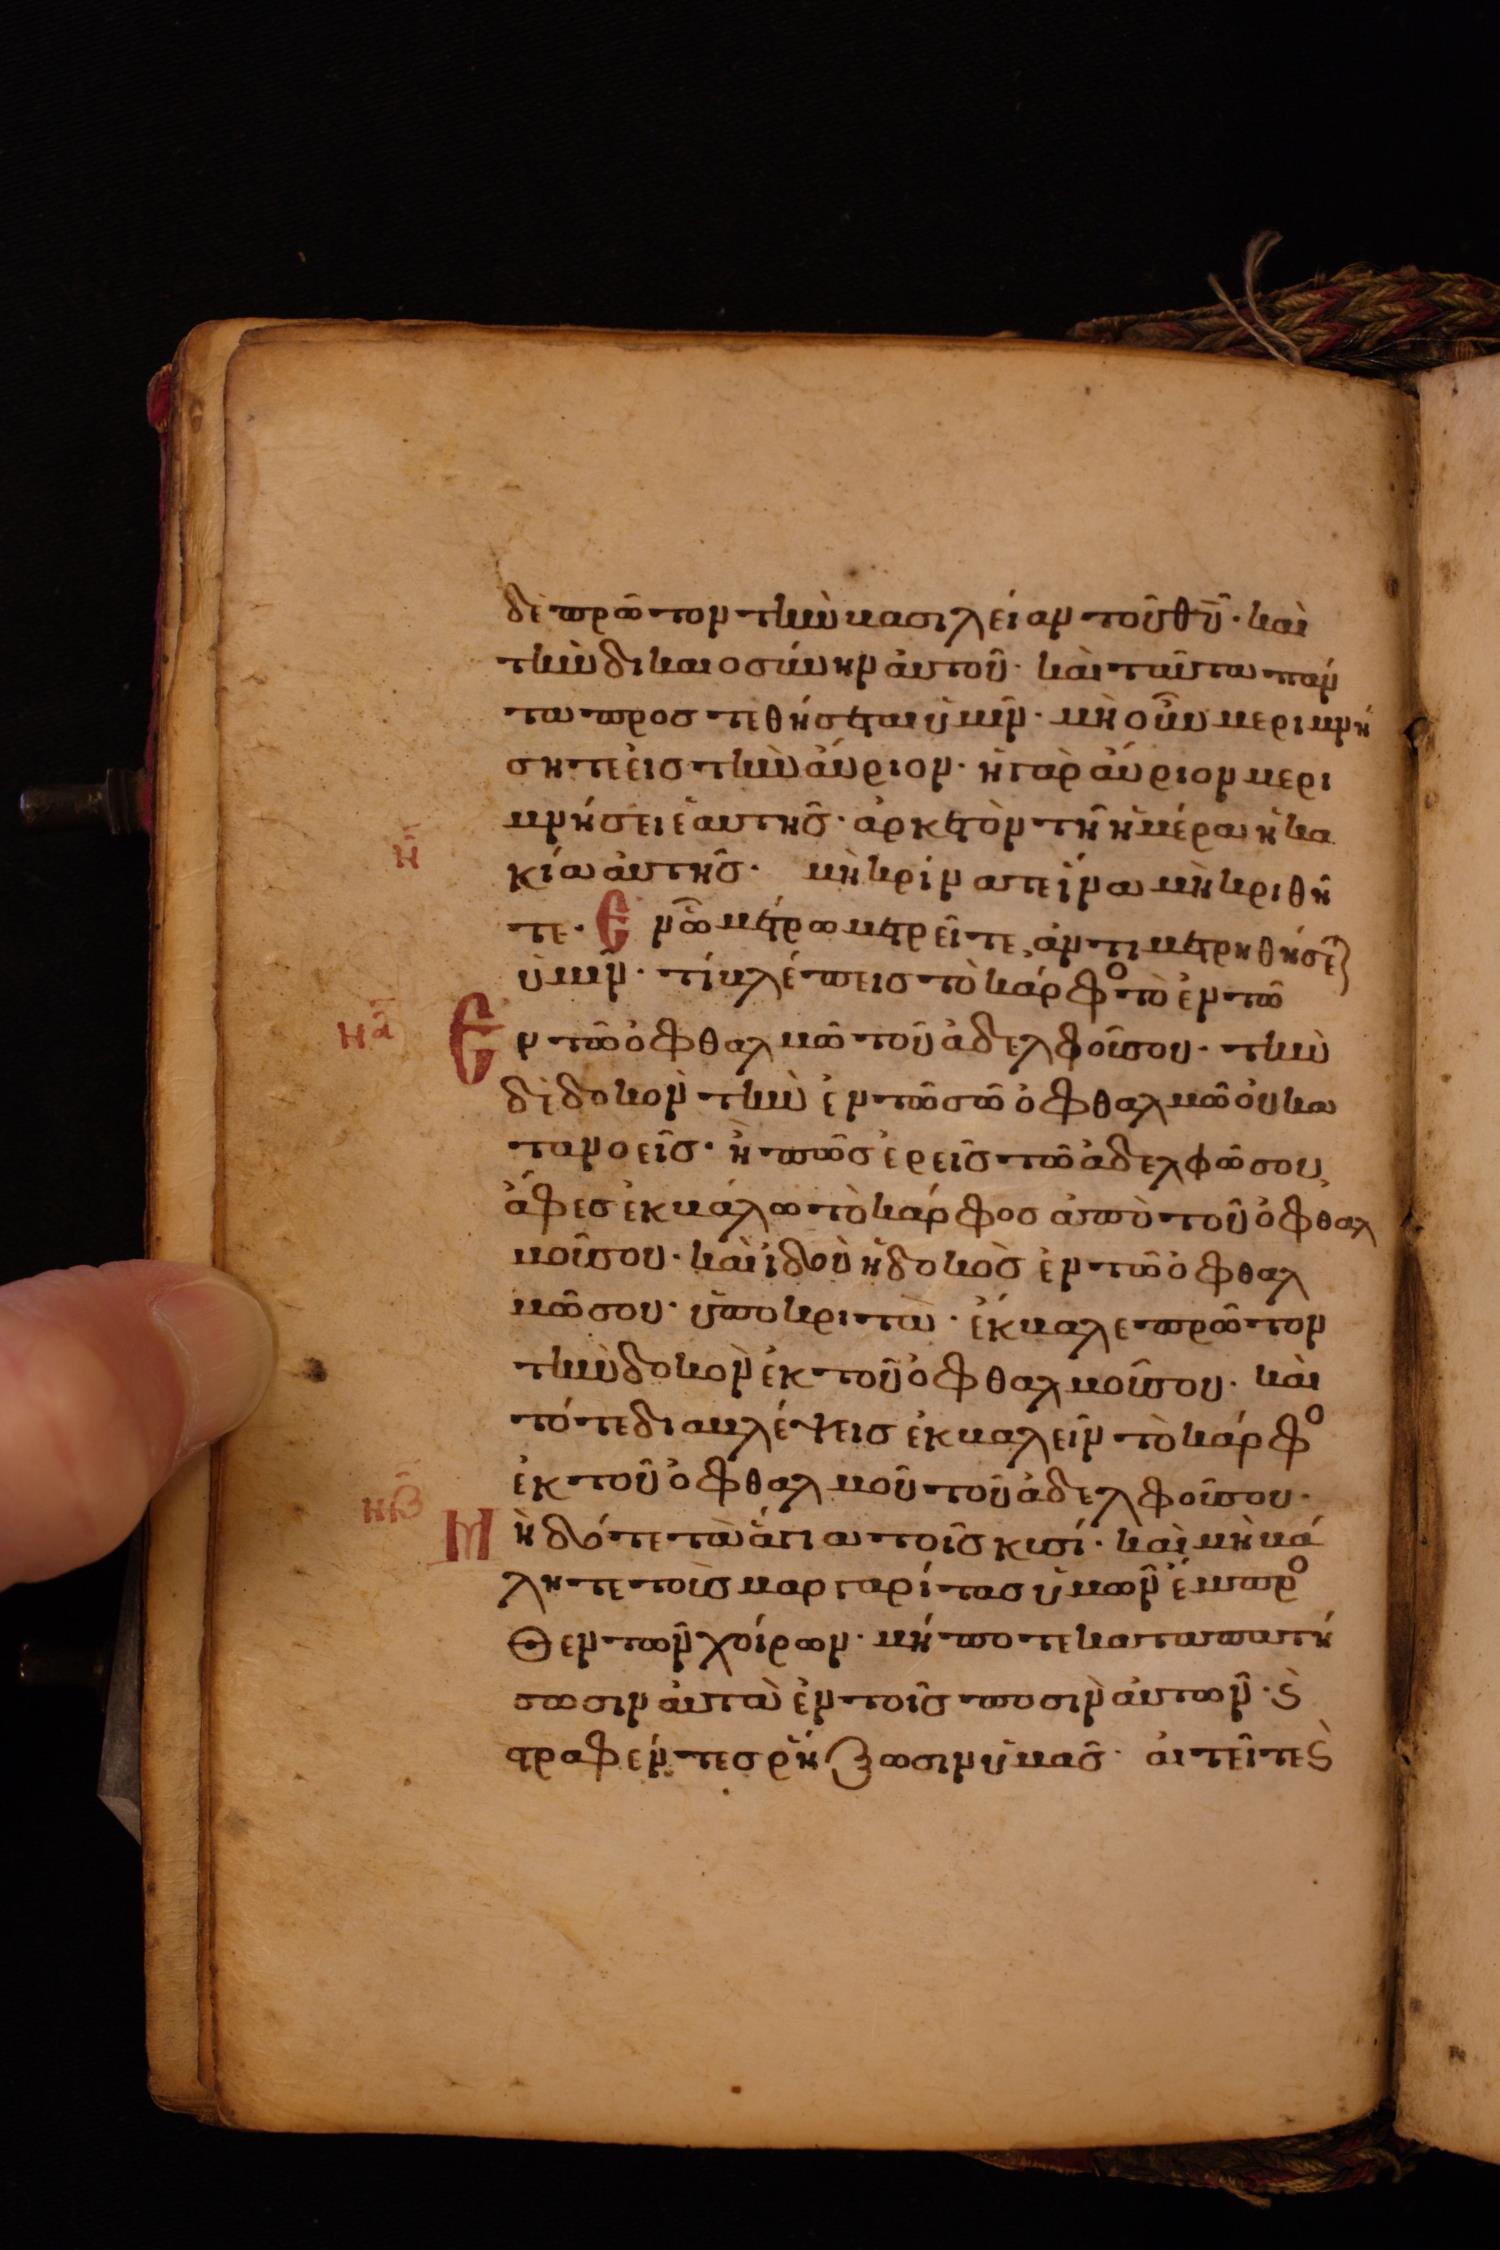 δὲ πρῶτον τὴν βασιλείαν τοῦ θυ̅· καὶ
τὴν δικαιοσύνην αὐτοῦ· καὶ ταῦτα πάν
τα προστεθήσεται ὑμῖν· μὴ οὖν μεριμνή
σητε εἰς τὴν αὔριον· ἡ γὰρ αὔριον μερι
μνήσει ἑαυτῆς· ἀρκετὸν τῇ ἡμέρα ἡ κα
κία αὐτῆς· μὴ κρίνατε ἵνα μὴ κριθῆ
τε· Ἐν ᾧ μέτρω μετρεῖτε, ἀντιμετρηθήσεται
ὑμῖν· τί βλέπεις τὸ κάρφο τὸ ἐν τῶ
Ἐν τῶ ὀφθαλμῶ τοῦ ἀδελφοῦ σου· τὴν
δὲ δοκὸν τὴν ἐν τῶ σῶ ὀφθαλμῶ οὐ κα
τανοεῖς· ἢ πῶς ἐρεῖς τῶ ἀδελφῶ σου,
ἄφες ἐκβάλω τὸ κάρφος ἀπὸ τοῦ ὀφθαλ
μοῦ σου· καὶ ἰδοὺ ἡ δοκὸς ἐν τῶ ὀφθαλ
μῶ σου· ὑποκριτὰ· ἔκβαλε πρῶτον
τὴν δοκὸν ἐκ τοῦ ὀφθαλμοῦ σου· καὶ
τότε διαβλέψεις ἐκβαλεῖν τὸ κάρφο
ἐκ τοῦ ὀφθαλμοῦ τοῦ ἀδελφοῦ σου·
Μὴ δότε τὰ ἅγια τοῖς κυσί· καὶ μὴ βά
λητε τοὺς μαργαρίτας ὑμῶν ἔμπρο
σθεν τῶν χοίρων· μήποτε καταπατή
σωσιν αὐτὰ ἐν τοῖς ποσὶν αὐτῶν· ϛ
τραφέντες ῥήξωσιν ὑμᾶς· αἰτεῖτε ϛ
η̅
ηα̅
ηβ̅